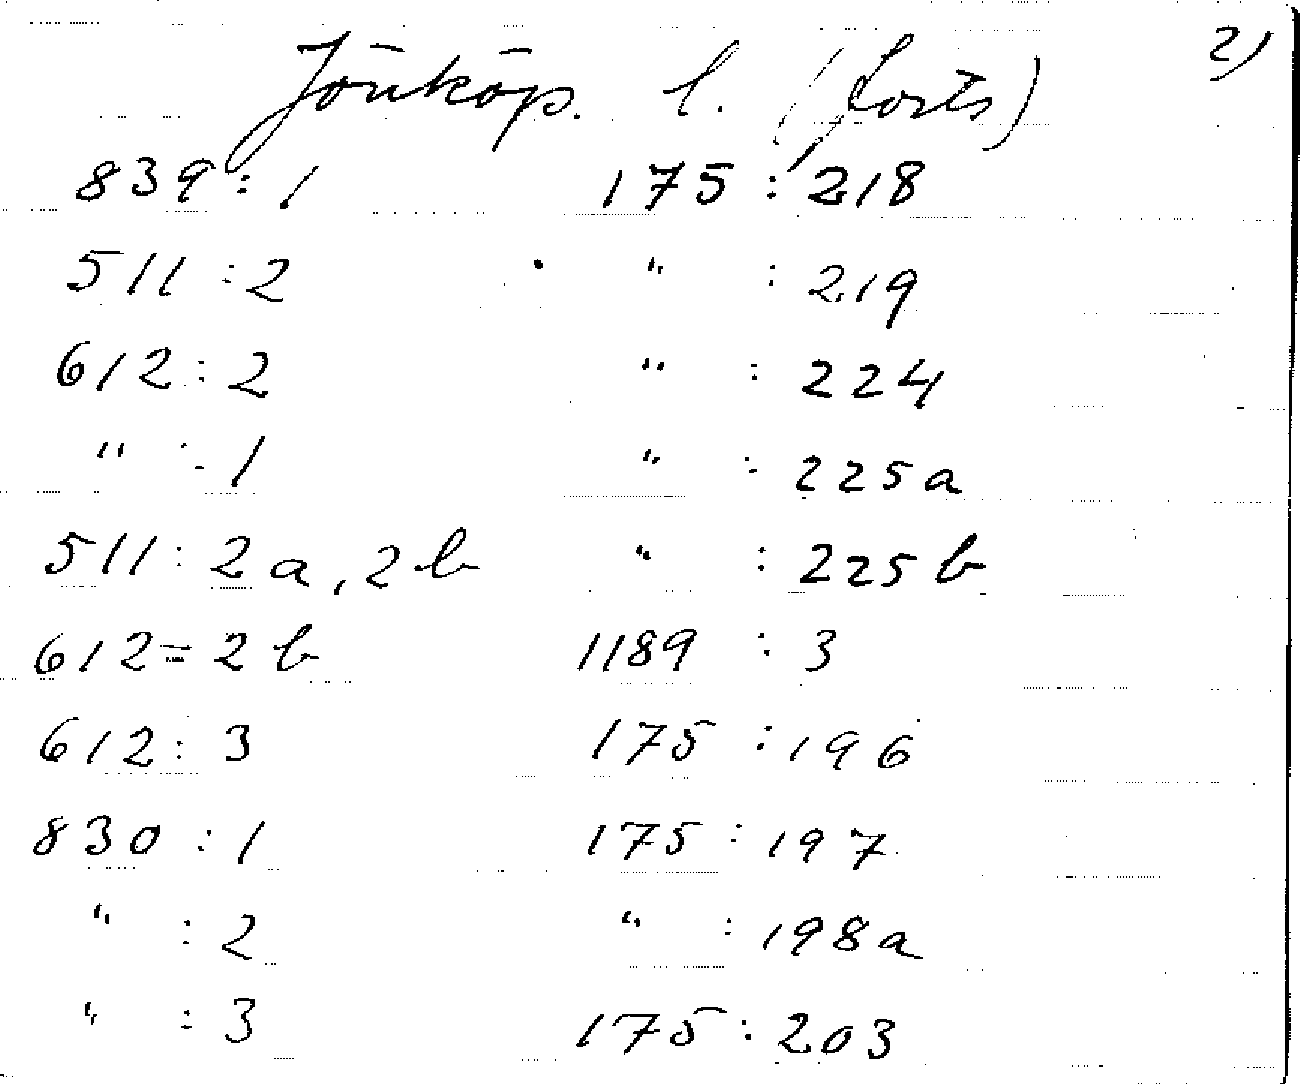 2)
Jönköp. l. (forts)
839:1 175:218
511:2 " :219
612:2 " :224
" :1 " :225a
511:2a, 2b " :225b
612=2b 1189:3
612:3 175:196
830:1 175:197
" :2 " :198a
" :3 175:203